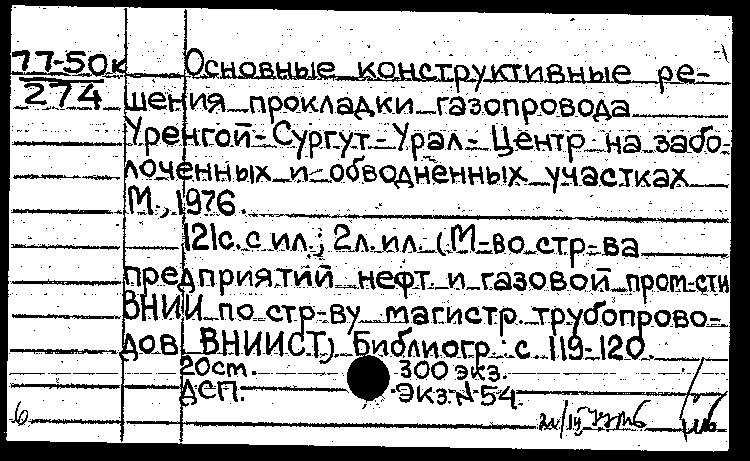 77-50к Основные конструктивные ре-
274 шения прокладки газопровода
Уренгой-Сургут-Урал-Центр на забо-
лоченных и обводненных участках
М., 1976.
121с. с ил.; 2л. ил. (М-во стр-ва
предприятий нефт. и газовой пром-сти
ВНИИ по стр-ву магистр. трубопрово-
дов ВНИИСТ) Библиогр.: с. 119-120.
20ст. 300 экз.
ДСП. Экз.№54.
б